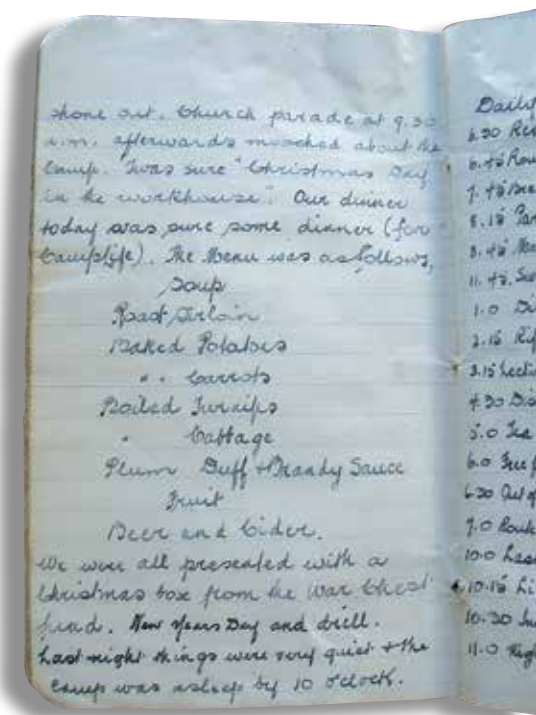 shone out. Church parade at 9.30
a.m. afterwards mooched about the
Camp. Twas sure "Christmas Day
in the workhouse". Our dinner
today was sure some dinner (for
Camplife). The Menu was as follows,
Soup
Roast Sirloin
Baked Potatoes
" " Carrots
Boiled Turnips
" Cabbage
Plum Duff + Brandy Sauce
Fruit
Beer and Cider.
We were all presented with a
Christmas box from the War Chest
fund. New Years Day and drill.
Last night things were very quiet + the
Camp was asleep by 10 o'clock.
Daily
6.30
6.45
7.45
8.15
8.45
11.45
1.0
2.15
3.15
4.30
5.0 Tea
6.0
6.30 Out of
7.0
10.0
10.15
10.30
11.0